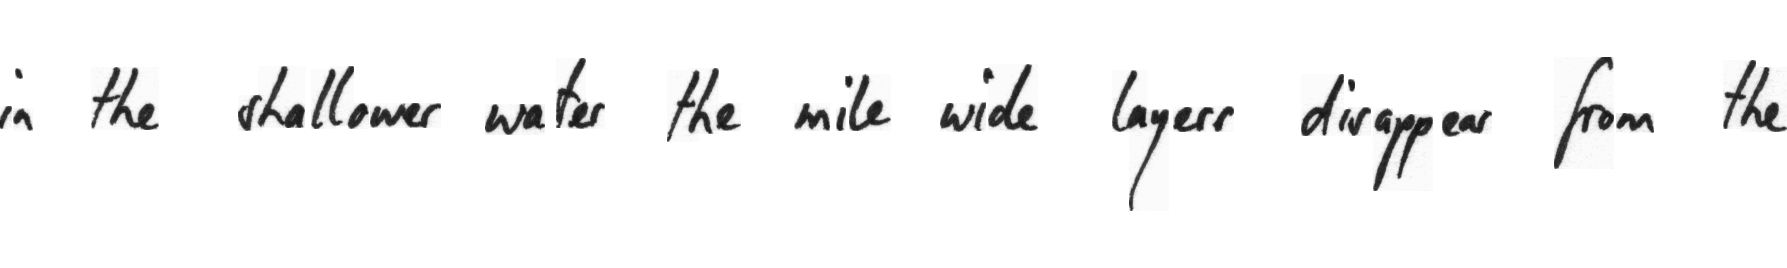 in the shallower water the mile wide layers disappear from the